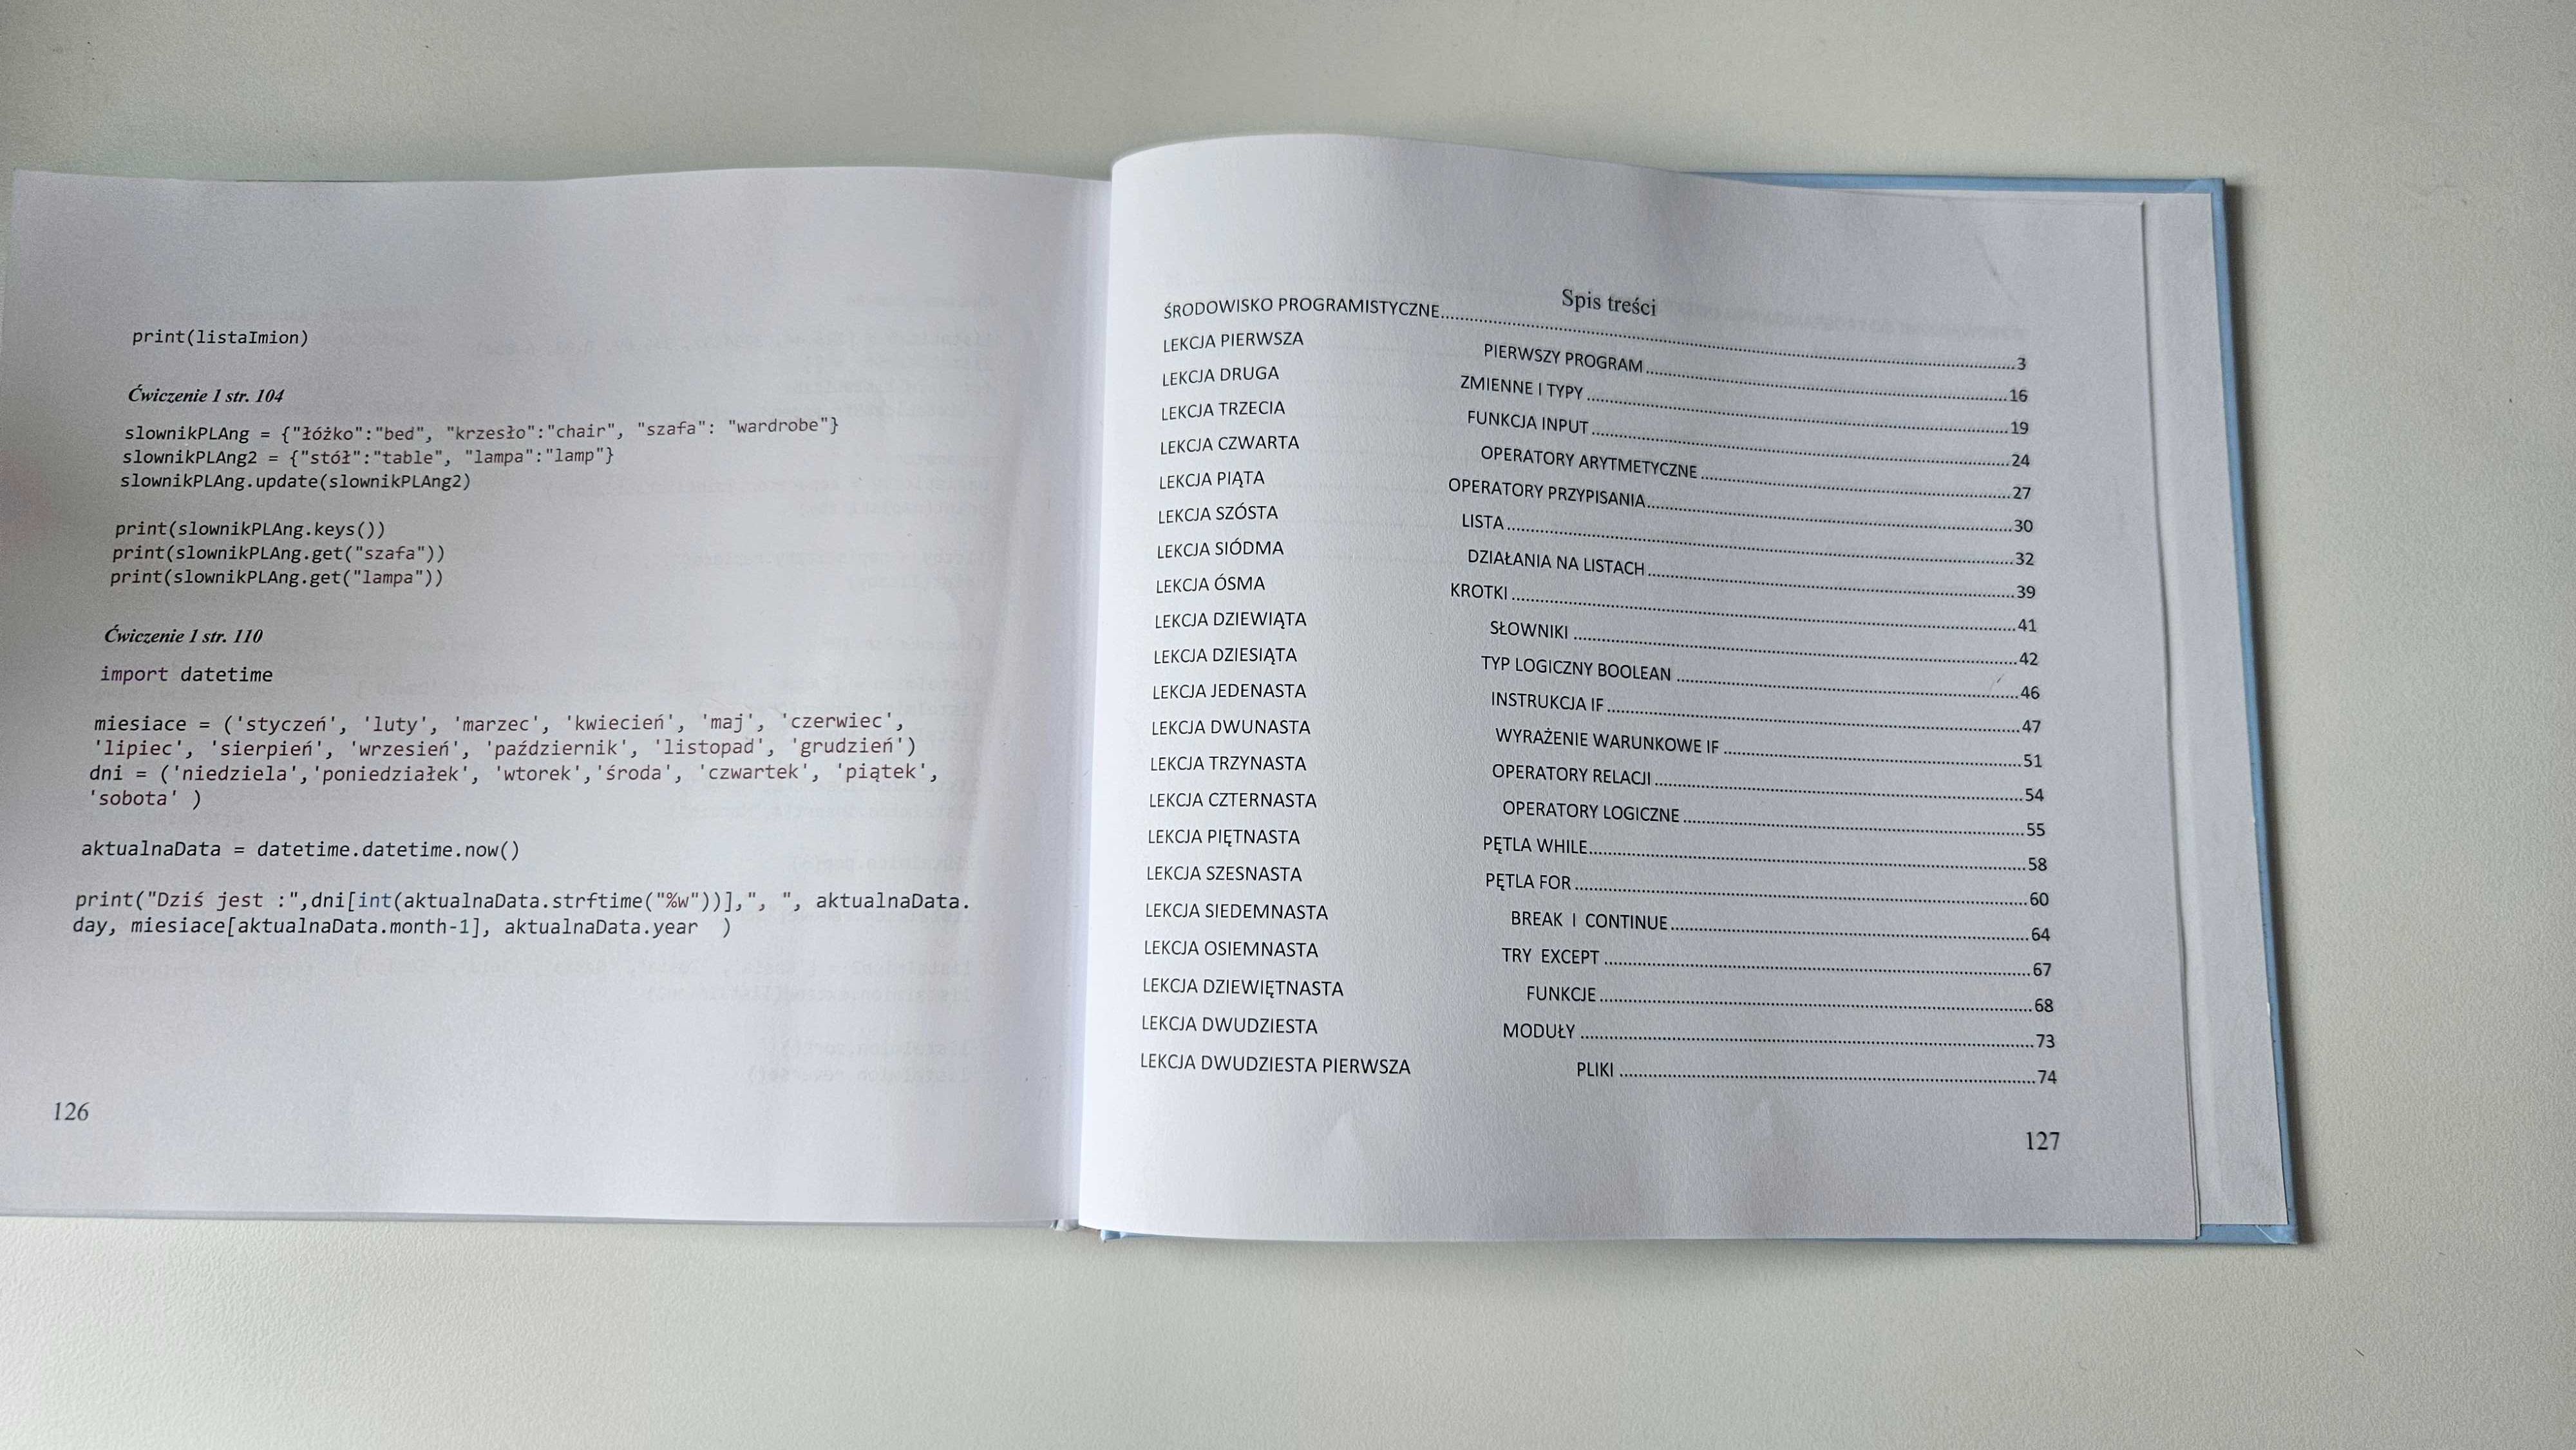 print(listaImion)
Ćwiczenie 1 str. 104
slownikPLAng = {"łóżko":"bed", "krzesło":"chair", "szafa": "wardrobe"}
slownikPLAng2 = {"stół":"table", "lampa":"lamp"}
slownikPLAng.update(slownikPLAng2)
print(slownikPLAng.keys())
print(slownikPLAng.get("szafa"))
print(slownikPLAng.get("lampa"))
Ćwiczenie 1 str. 110
import datetime
miesiace = ('styczeń', 'luty', 'marzec', 'kwiecień', 'maj', 'czerwiec',
'lipiec', 'sierpień', 'wrzesień', 'październik', 'listopad', 'grudzień')
dni = ('niedziela','poniedziałek', 'wtorek','środa', 'czwartek', 'piątek',
'sobota' )
aktualnaData = datetime.datetime.now()
print("Dziś jest :",dni[int(aktualnaData.strftime("%w"))],", ", aktualnaData.
day, miesiace[aktualnaData.month-1], aktualnaData.year  )
126
Spis treści
ŚRODOWISKO PROGRAMISTYCZNE....................3
LEKCJA PIERWSZA PIERWSZY PROGRAM....................16
LEKCJA DRUGA ZMIENNE I TYPY....................19
LEKCJA TRZECIA FUNKCJA INPUT....................24
LEKCJA CZWARTA OPERATORY ARYTMETYCZNE....................27
LEKCJA PIĄTA OPERATORY PRZYPISANIA....................30
LEKCJA SZÓSTA LISTA....................32
LEKCJA SIÓDMA DZIAŁANIA NA LISTACH....................39
LEKCJA ÓSMA KROTKI....................41
LEKCJA DZIEWIĄTA SŁOWNIKI....................42
LEKCJA DZIESIĄTA TYP LOGICZNY BOOLEAN....................46
LEKCJA JEDENASTA INSTRUKCJA IF....................47
LEKCJA DWUNASTA WYRAŻENIE WARUNKOWE IF....................51
LEKCJA TRZYNASTA OPERATORY RELACJI....................54
LEKCJA CZTERNASTA OPERATORY LOGICZNE....................55
LEKCJA PIĘTNASTA PĘTLA WHILE....................58
LEKCJA SZESNASTA PĘTLA FOR....................60
LEKCJA SIEDEMNASTA BREAK I CONTINUE....................64
LEKCJA OSIEMNASTA TRY EXCEPT....................67
LEKCJA DZIEWIĘTNASTA FUNKCJE....................68
LEKCJA DWUDZIESTA MODUŁY....................73
LEKCJA DWUDZIESTA PIERWSZA PLIKI....................74
127